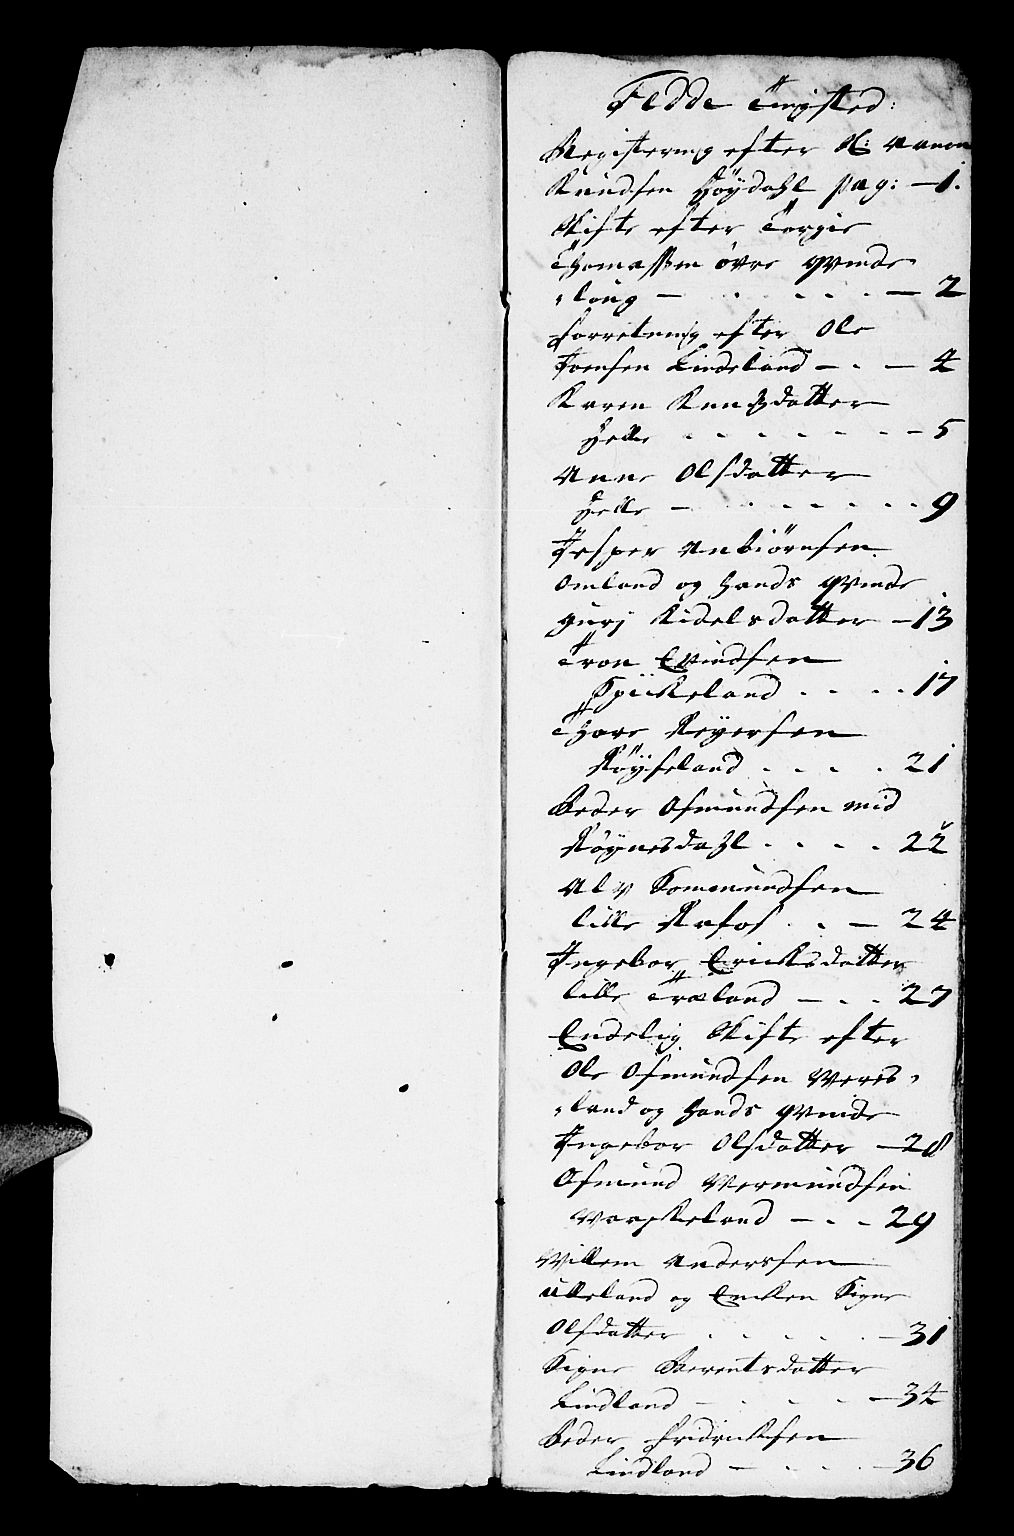 Fedde Tingsted:
Registering efter Sr: Aanen
Knudsen Høydahl pag: — 1.
Skifte efter Torgie
Thomassen øvre Qvinds
„loug — . . . . . — 2
Forretning efter Ole
Joensen Lindeland — . — 4
Karen Knudsdatter
Helle . . . . . . — 5
Anne Olsdatter
Helle — . . . . . . 9
Jesper Anbiørnsen
Omland og hands Qvinde
Gurj Kidelsdatter — 13
Tron Evindsen
Spickeland . . . . 17
Thore Reyersen
Røyseland . . . . 21
Peder Osmundsen mid
Røynesdahl . . . . 22
Alv Sommundsen
lille Rafos . . — 24
Ingebor Ericksdatter
lille Træland — . . 27
Endelig Skifte efter
Ole Osmundsen Weres„
„land og hands Qvinde
Ingebor Olsdatter — 28
Osmund Vermundsen
Waaskeland — . . 29
Willem Anderssen
Ulleland og Encken Signe
Olsdatter . . . . . — 31
Signe Berentsdatter
Lindland — . . . . — 34
Peder Fridricksen
Lindland — . . . — 36